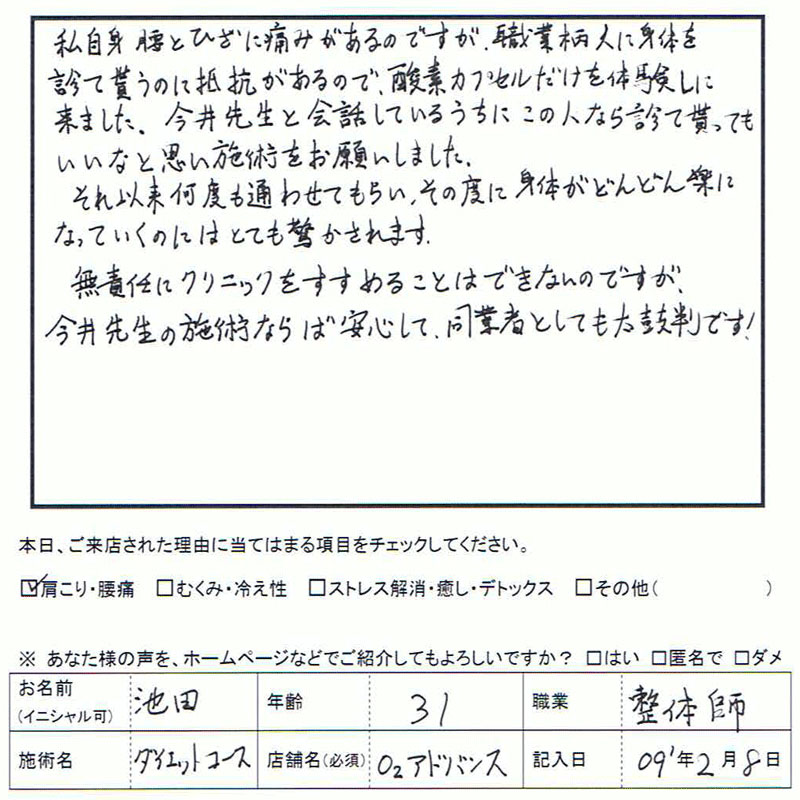 私自身 腰とひざに痛みがあるのですが、職業柄人に身体を
診て貰うのに抵抗があるので、酸素カプセルだけを体験しに
来ました。今井先生と会話しているうちにこの人なら診て貰っても
いいなと思い施術をお願いしました。
それ以来何度も通わせてもらい、その度に身体がどんどん楽に
なっていくのにはとても驚かされます。
無責任にクリニックをすすめることはできないのですが、
今井先生の施術ならば安心して、同業者としても太鼓判です!
本日、ご来店された理由に当てはまる項目をチェックしてください。
☑肩こり・腰痛 □むくみ・冷え性 □ストレス解消・癒し・デトックス □その他( )
※ あなた様の声を、ホームページなどでご紹介してもよろしいですか? □はい □匿名で □ダメ
お名前(イニシャル可) 池田 年齢 31 職業 整体師
施術名 ダイエットコース 店舗名(必須) O₂アドバンス 記入日 09'年2月8日